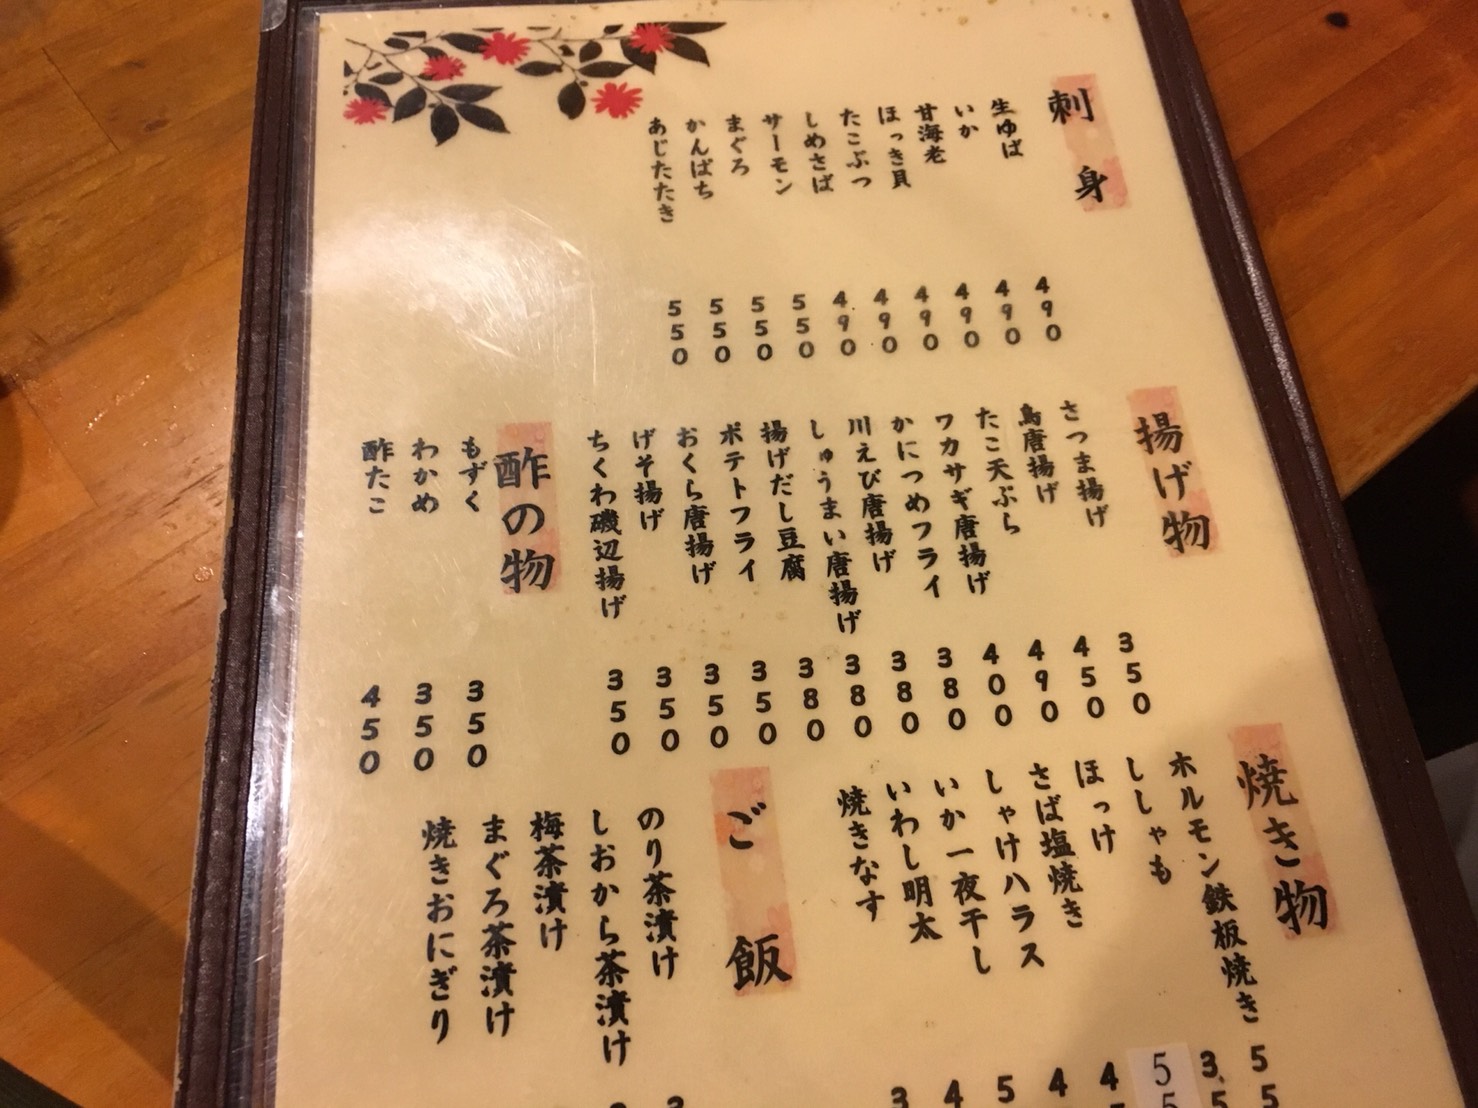 刺身
生ゆば 490
いか 490
甘海老 490
ほっき貝 490
たこぶつ 490
しめさば 490
サーモン 550
まぐろ 550
かんぱち 550
あじたたき 550
揚げ物
さつま揚げ 350
鳥唐揚げ 450
たこ天ぷら 490
ワカサギ唐揚げ 400
かにつめフライ 380
川えび唐揚げ 380
しゅうまい唐揚げ 380
揚げだし豆腐 380
ポテトフライ 350
おくら唐揚げ 350
げそ揚げ 350
ちくわ磯辺揚げ 350
酢の物
もずく 350
わかめ 350
酢たこ 450
焼き物
ホルモン鉄板焼き
ししゃも
ほっけ
さば塩焼き
しゃけハラス
いか一夜干し
いわし明太
焼きなす
ご飯
のり茶漬け
しおから茶漬け
梅茶漬け
まぐろ茶漬け
焼きおにぎり